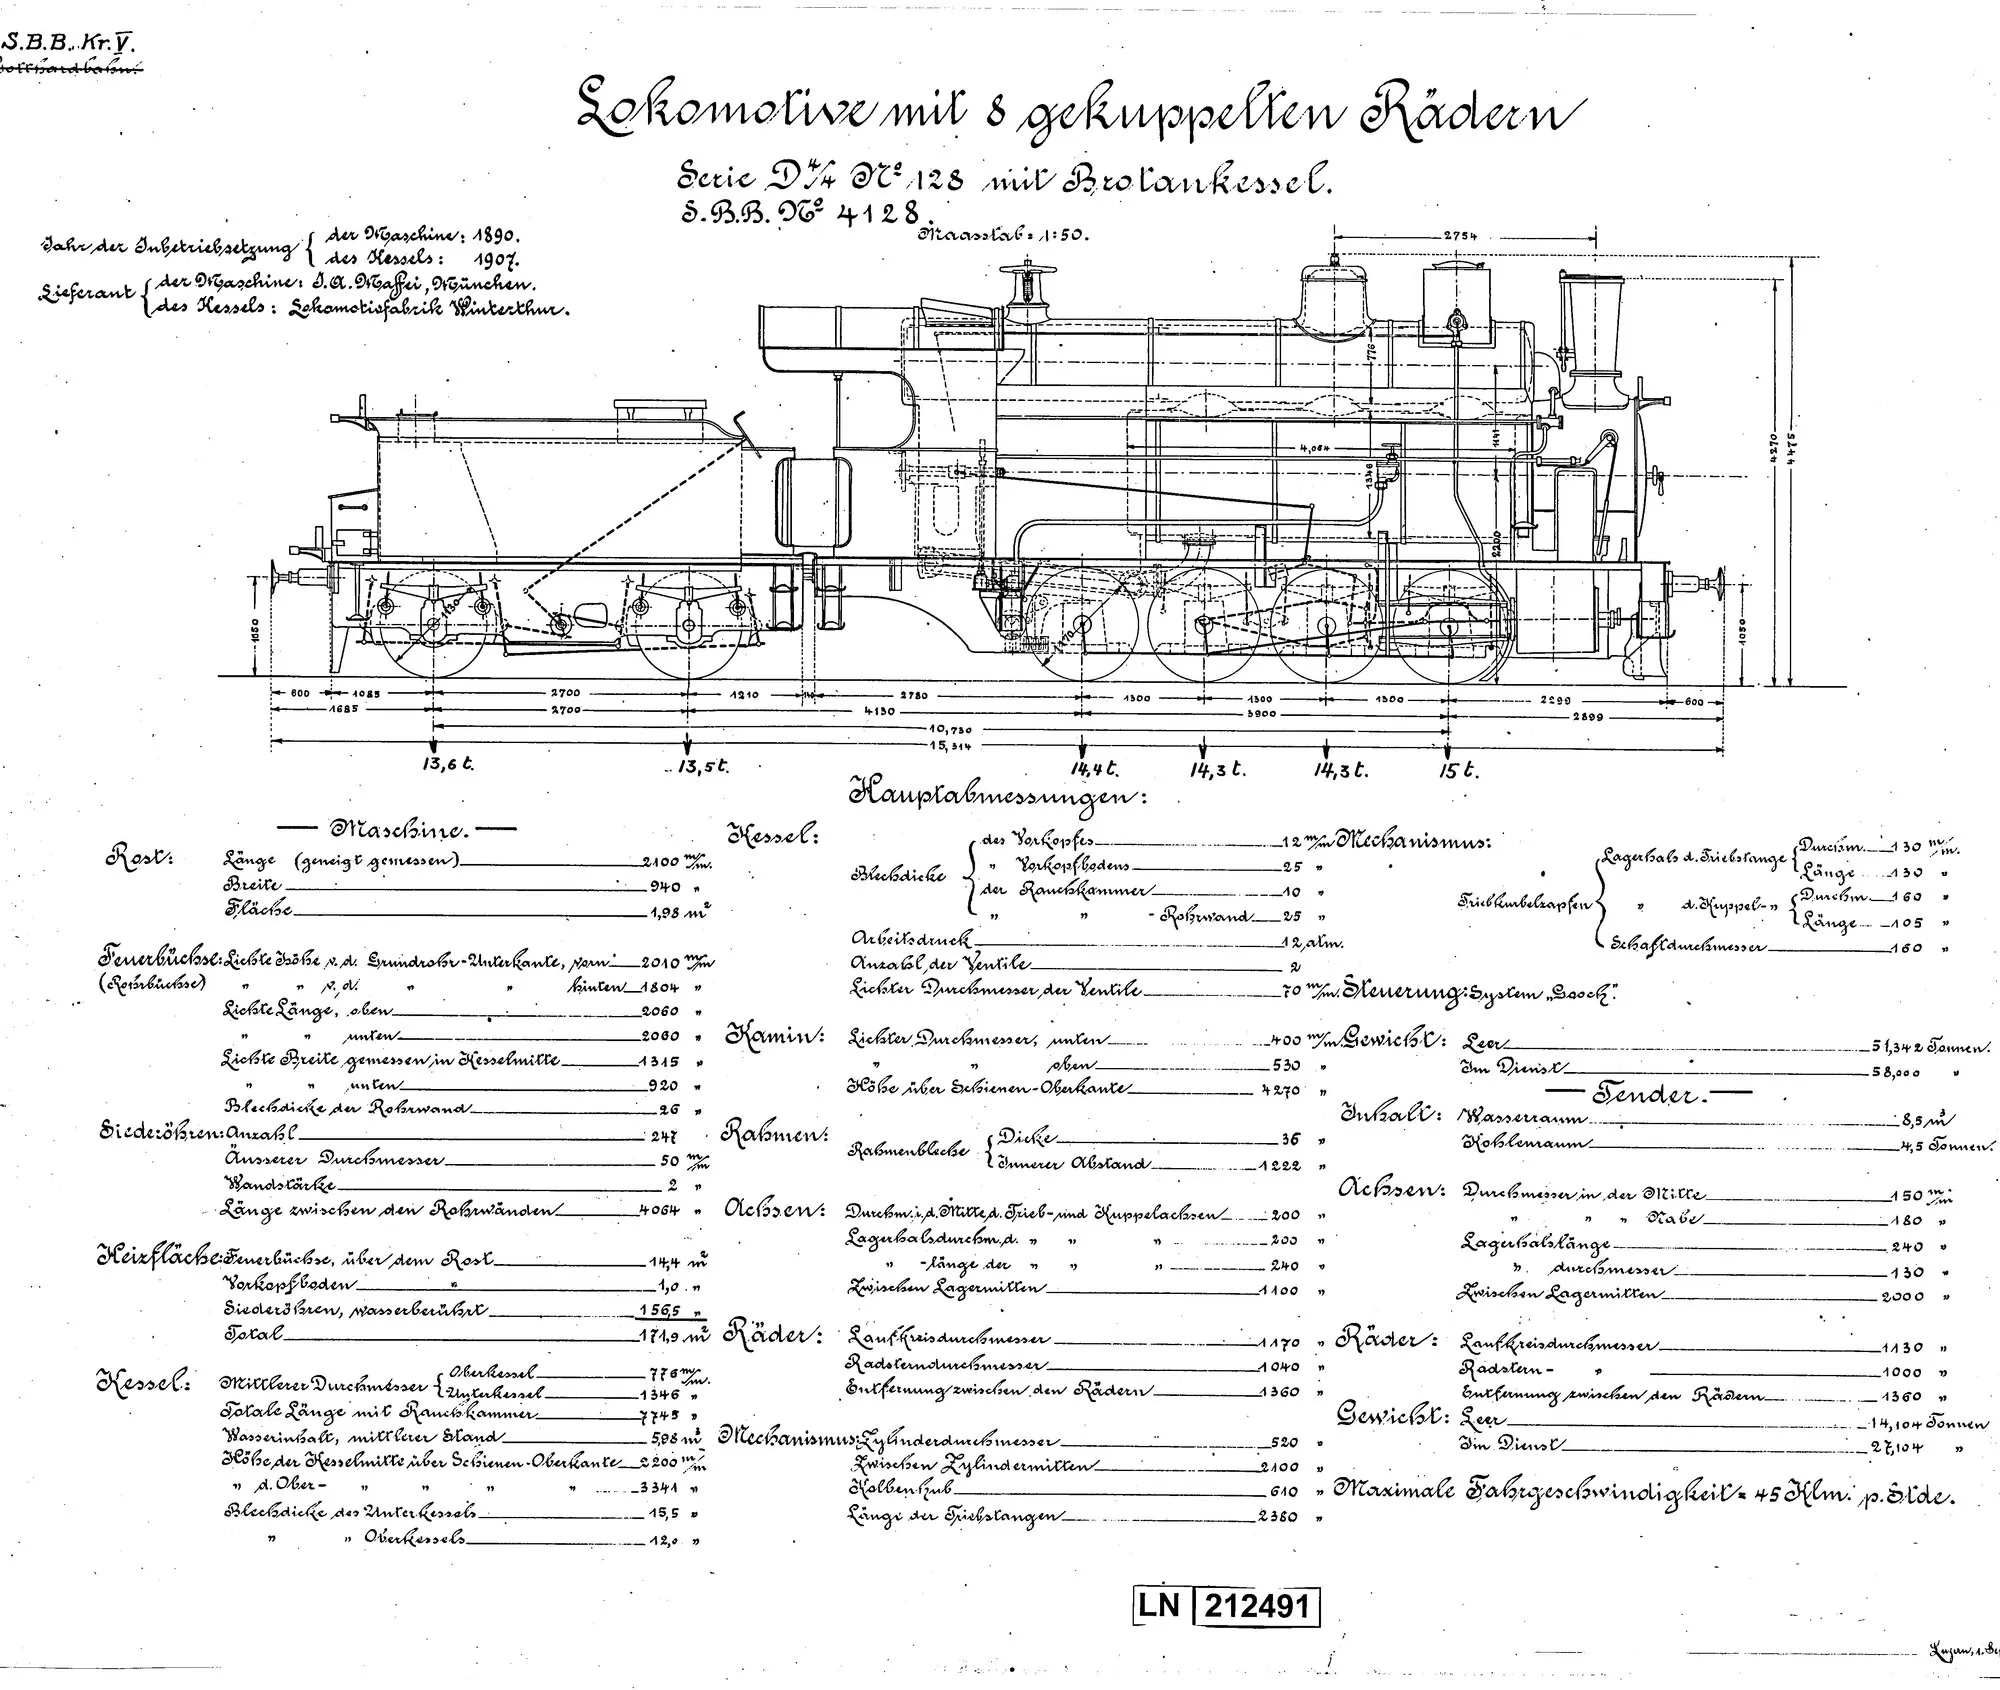 S.B.B. Kr. V.
Gotthardbahn.
Lokomotive mit 8 gekuppelten Rädern
Serie D 4/4 No 128 mit Brotankessel.
S.B.B. No 4128.
Maasstab: 1:50.
Jahr der Inbetriebsetzung { der Maschine: 1890.
des Kessels: 1907.
Lieferant { der Maschine: J.A. Maffei, München.
des Kessels: Lokomotivfabrik Winterthur.
2754
776
4,064
1141
1346
2200
4270
5244
1050
1130
1170
1050
600 1085 2700 1210 2780 1300 1300 1300 2299 600
1685 2700 4130 3900 2899
10,730
15,314
13,6 t. 13,5 t. 14,4 t. 14,3 t. 14,3 t. 15 t.
Hauptabmessungen:
— Maschine. —
Rost: Länge (geneigt gemessen) 2100 m/m.
Breite 940 "
Fläche 1,98 m²
Feuerbüchse: Lichte Höhe v.d. Grundrohr-Unterkante, vorn 2010 m/m
(Rohrbüchse) " " v.d. " " hinten 1804 "
Lichte Länge, oben 2060 "
" " unten 2060 "
Lichte Breite gemessen in Kesselmitte 1315 "
" " unten 920 "
Blechdicke der Rohrwand 26 "
Siederöhren: Anzahl 247
Äusserer Durchmesser 50 m/m
Wandstärke 2 "
Länge zwischen den Rohrwänden 4064 "
Heizfläche: Feuerbüchse, über dem Rost 14,4 m²
Vorkopfboden " 1,0 "
Siederöhren, wasserberührt 156,5 "
Total 171,9 m²
Kessel: Mittlerer Durchmesser { Oberkessel 776 m/m.
Unterkessel 1346 "
Totale Länge mit Rauchkammer 7745 "
Wasserinhalt, mittlerer Stand 5,98 m³
Höhe der Kesselmitte über Schienen-Oberkante 2200 m/m
" d. Ober- " " " " 3341 "
Blechdicke des Unterkessels 15,5 "
" " Oberkessels 12,0 "
Kessel:
Blechdicke { des Vorkopfes 12 m/m
" Vorkopfbodens 25 "
der Rauchkammer 10 "
" " - Rohrwand 25 "
Arbeitsdruck 12 atm.
Anzahl der Ventile 2
Lichter Durchmesser der Ventile 70 m/m.
Kamin: Lichter Durchmesser, unten 400 m/m.
" " oben 530 "
Höhe über Schienen-Oberkante 4270 "
Rahmen:
Rahmenbleche { Dicke 36 "
Innerer Abstand 1222 "
Achsen: Durchm. i.d. Mitte, d. Trieb- und Kuppelachsen 200 "
Lagerhalsdurchm. d. " " " 200 "
" -länge der " " " 240 "
Zwischen Lagermitten 1100 "
Räder: Laufkreisdurchmesser 1170 "
Radsterndurchmesser 1040 "
Entfernung zwischen den Rädern 1360 "
Mechanismus: Zylinderdurchmesser 520 "
Zwischen Zylindermitten 2100 "
Kolbenhub 610 "
Länge der Triebstangen 2380 "
Mechanismus:
Triebkurbelzapfen { Lagerhals d. Triebstange { Durchm. 130 m/m.
Länge 130 "
" d. Kuppel- " { Durchm. 160 "
Länge 105 "
Schaftdurchmesser 160 "
Steuerung: System „Gooch".
Gewicht: Leer 51,342 Tonnen.
Im Dienst 58,000 "
— Tender. —
Inhalt: Wasserraum 8,5 m³
Kohlenraum 4,5 Tonnen.
Achsen: Durchmesser in der Mitte 150 m/m
" " " Nabe 180 "
Lagerhalslänge 240 "
" durchmesser 130 "
Zwischen Lagermitten 2000 "
Räder: Laufkreisdurchmesser 1130 "
Radstern- " 1000 "
Entfernung zwischen den Rädern 1360 "
Gewicht: Leer 14,104 Tonnen
Im Dienst 27,104 "
Maximale Fahrgeschwindigkeit = 45 Klm. p. Stde.
LN 212491
Luzern, 1.